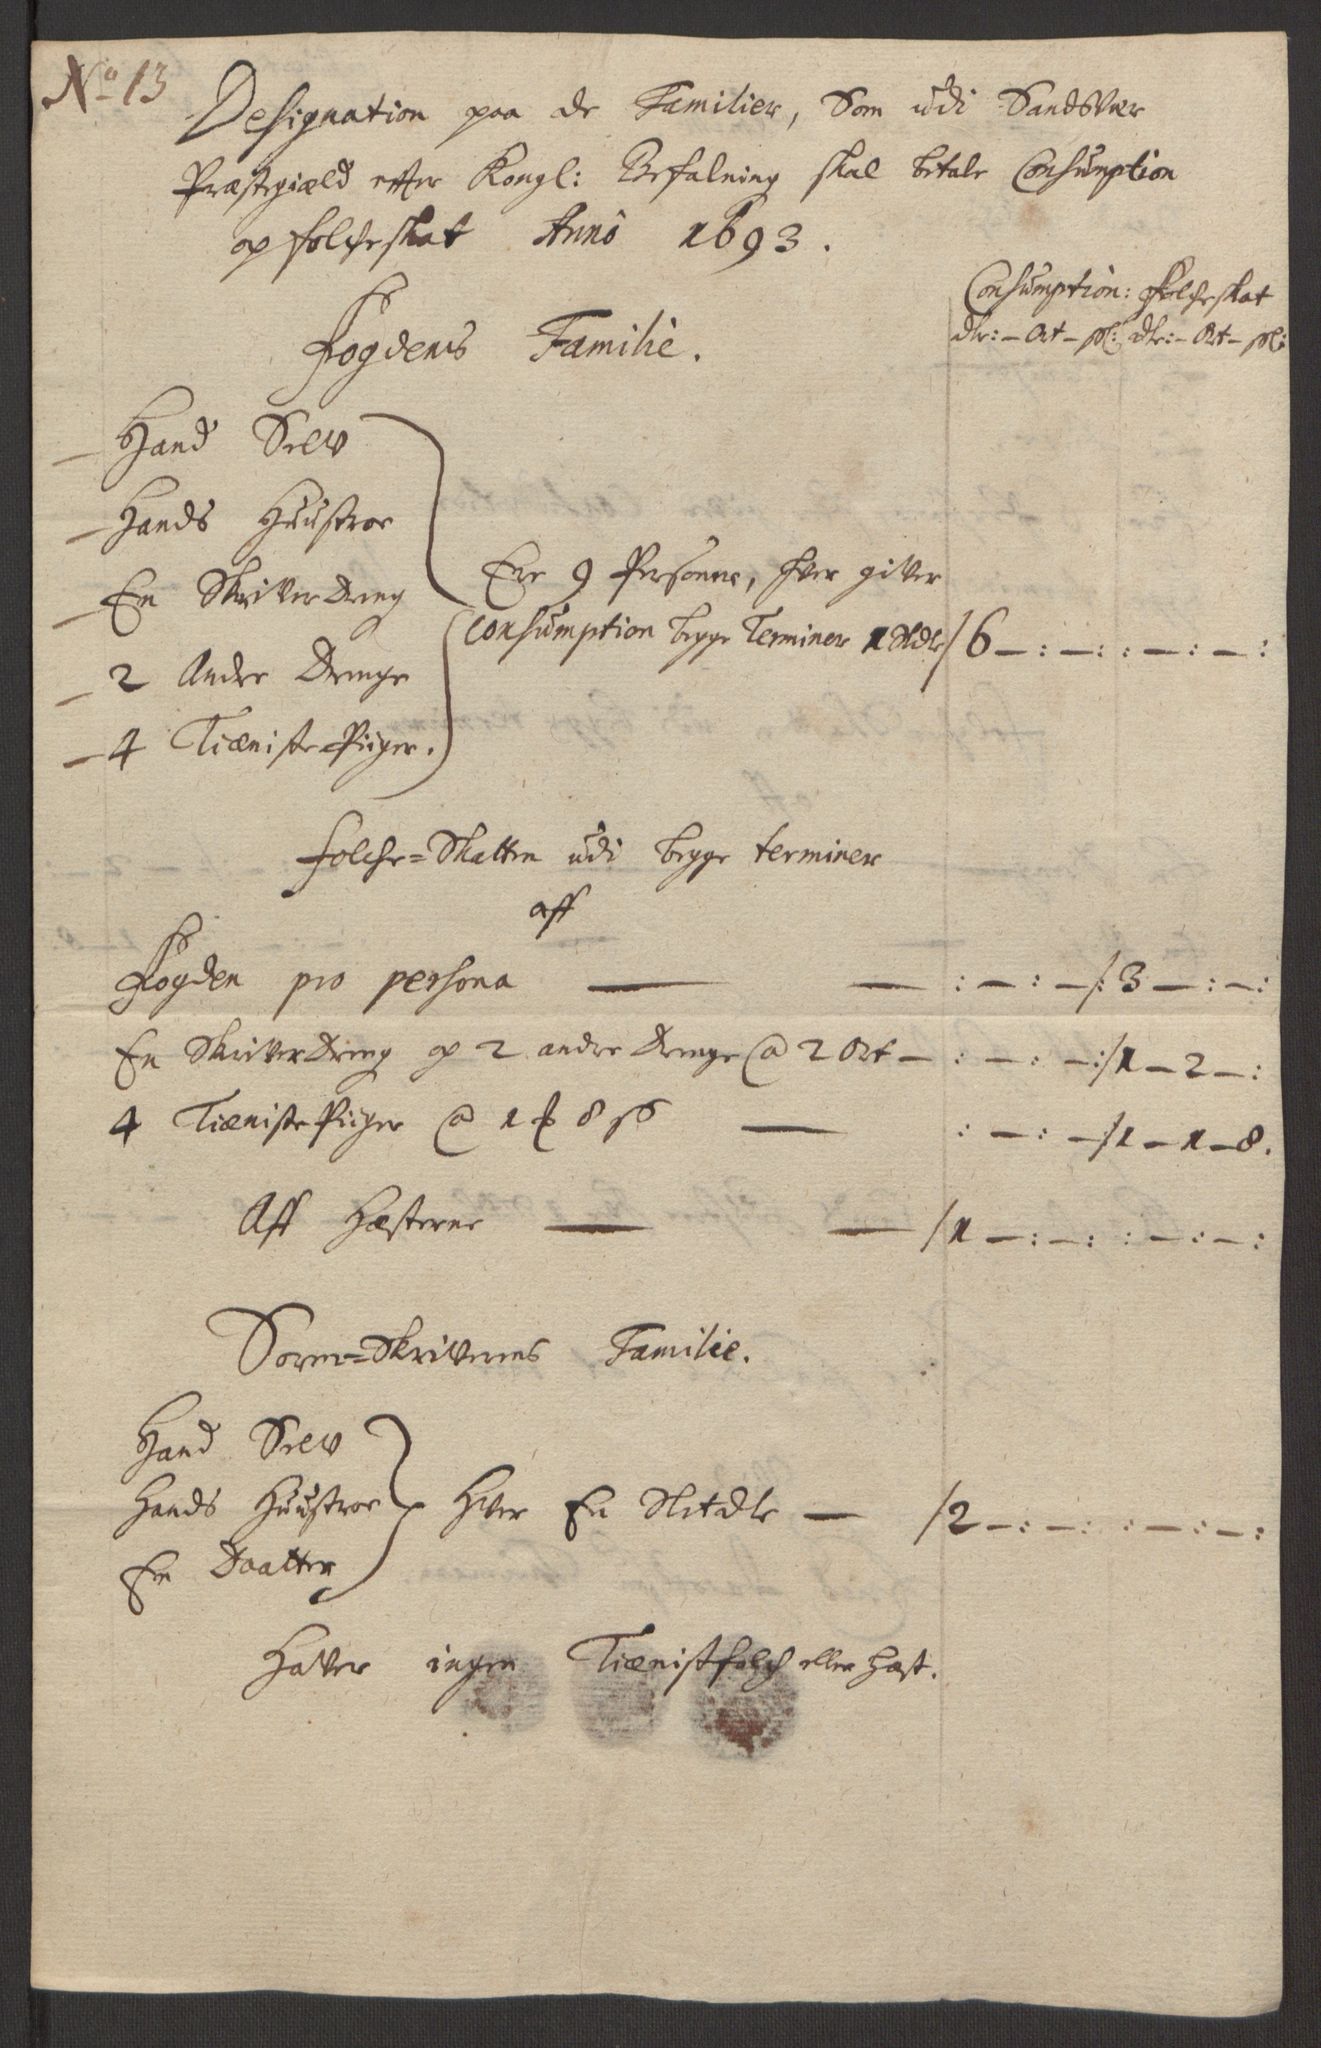 No 13
Designation paa de Familier, Som udi Sandsvær
Præstegiæld efter Kongl: Befalning skal betale Consumption
og folcheskat Anno 1693.
Consumption: Folcheskat
dlr: - Ort - sl: dlr: - Ort - sl:
Fogdens Familie.
Hand Selv
Hands Huustroe
En Skriver Dreng
2 Andre Drenge
4 Tieniste Piiger.
Ere 9 Personer, hver giver
Consumption begge Terminer 1 Sldlr / 6 - : - : : - : - :
folche=Skatten udi begge terminer
aff
Fogden pro persona — — : - : - /: 3 - : - :
En Skriver Dreng og 2 andre Drenge @ 2 Ort - : - : - :/ 1 - 2 - :
4 Tieniste Piiger @ 1 ₰ 8 sß — : - : - :/ 1 - 1 - 8.
Aff Hæsterne — — / 1 - : - : : - : - :
Soren=Skriverens Familie.
Hand Selv
Hands Huustroe
En Daatter
Hver En Sletdlr — / 2 - : - : : - : - :
Haver ingen Tienistfolch eller Hæst.